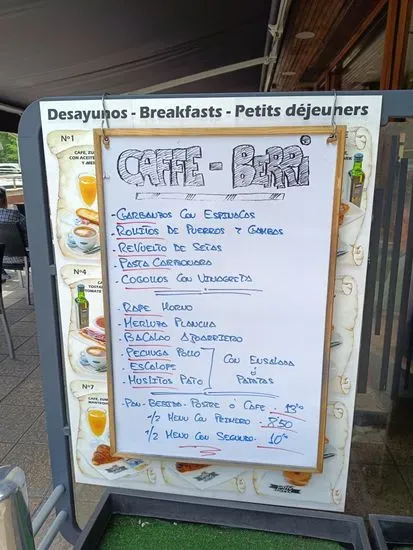 Desayunos - Breakfasts - Petits déjeuners
Nº1
Nº4
Nº7
CAFFE - BERRI
- GARBANZOS CON ESPINACAS
- ROLLITOS DE PUERROS Y GAMBAS
- REVUELTO DE SETAS
- PASTA CARBONARA
- COGOLLOS CON VINAGRETA
- RAPE HORNO
- MERLUZA PLANCHA
- BACALAO AJOARRIERO
- PECHUGA POLLO
- ESCALOPE
- MUSLITOS PATO
CON ENSALADA
ó
PATATAS
- PAN - BEBIDA - POSTRE ó CAFE
1/2 MENU CON PRIMERO 8'50
1/2 MENU CON SEGUNDO